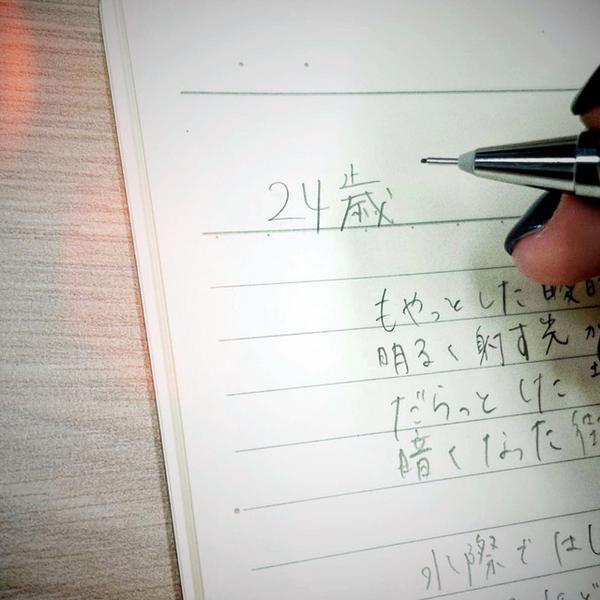 24歳
もやっとした
明るく射す光
だらっとした
暗くなった街
水際では